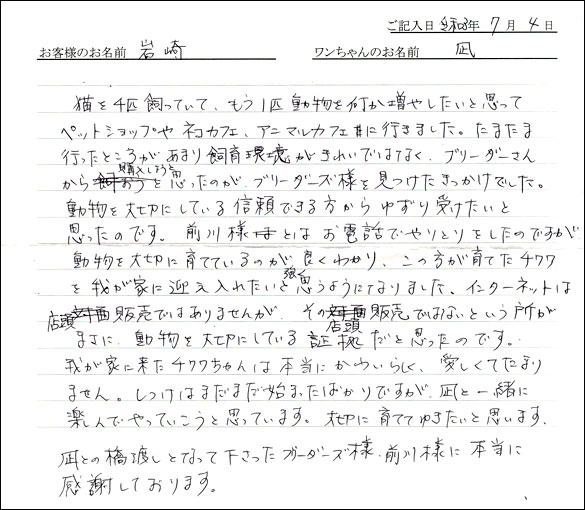 ご記入日 令和3年 7月 4日
お客様のお名前 岩崎 ワンちゃんのお名前 凪
猫を4匹飼っていて、もう1匹動物を何か増やしたいと思って
ペットショップやネコカフェ、アニマルカフェ等に行きました。たまたま
行ったところがあまり飼育環境がきれいではなく、ブリーダーさん
から購入しようと思ったのがブリーダーズ様を見つけたきっかけでした。
動物を大切にしている信頼できる方からゆずり受けたいと
思ったのです。前川様とはお電話でやりとりをしたのですが
動物を大切に育てているのが良くわかり、この方が育てたチワワ
を我が家に迎え入れたいと強く思うようになりました、インターネットは
店頭販売ではありませんが、その店頭販売ではないという所が
まさに、動物を大切にしている証拠だと思ったのです。
我が家に来たチワワちゃんは本当にかわいらしく、愛しくてたまり
ません。しつけはまだまだ始まったばかりですが、凪と一緒に
楽しんでやっていこうと思っています。大切に育ててゆきたいと思います.
凪との橋渡しとなって下さったブリーダーズ様、前川様に本当に
感謝しております。